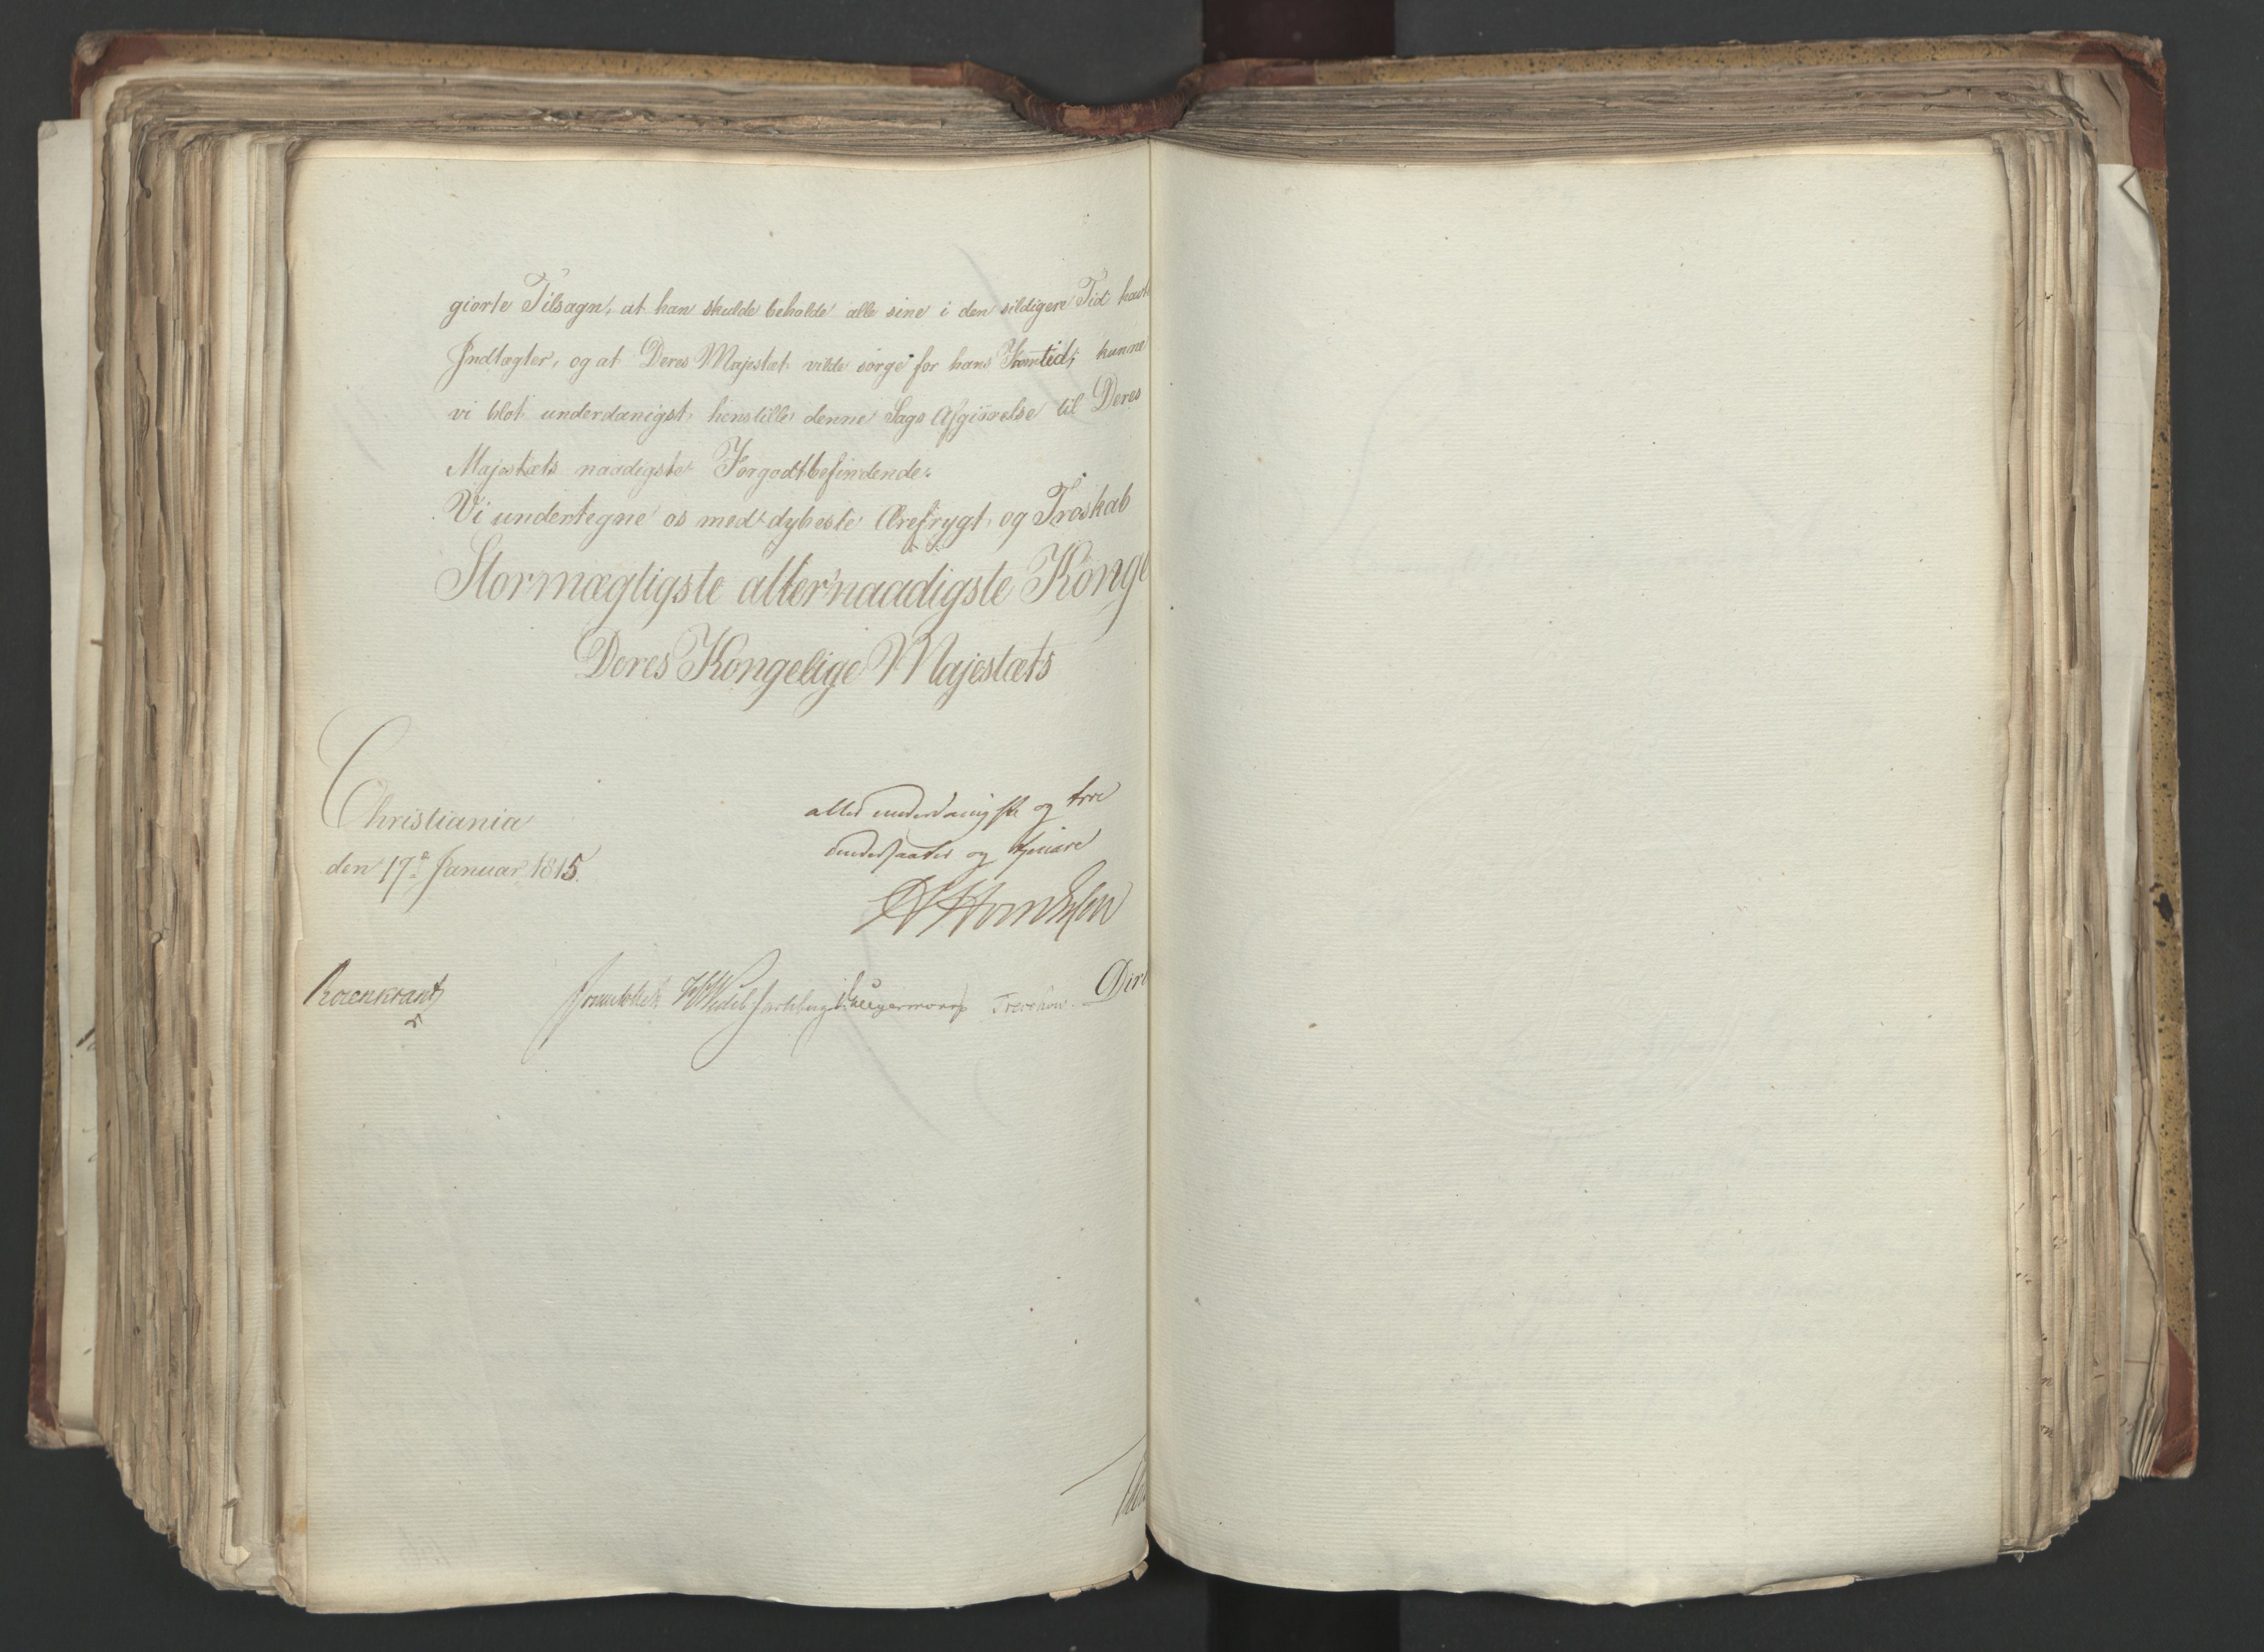 giorte Tilsagn, at han skulde beholde alle sine i den sildigere Tid havte
Indtægter, og at Deres Majestæt vilde sørge for hans Fremtid, kunne
vi blot underdanigst henstille denne Sags Afgiörelse til Deres
Majestæts naadigste Forgodtbefindende.
Vi undertegne os med dybeste Ærefrygt og Troskab
Stormægtigste allernaadigste Konge
Deres Kongelige Majestæts
Christiania
den 17de Januar 1815.
allerunderdanigste og troe
undersaatter og tjenere
Rosenkrantz
Treschow